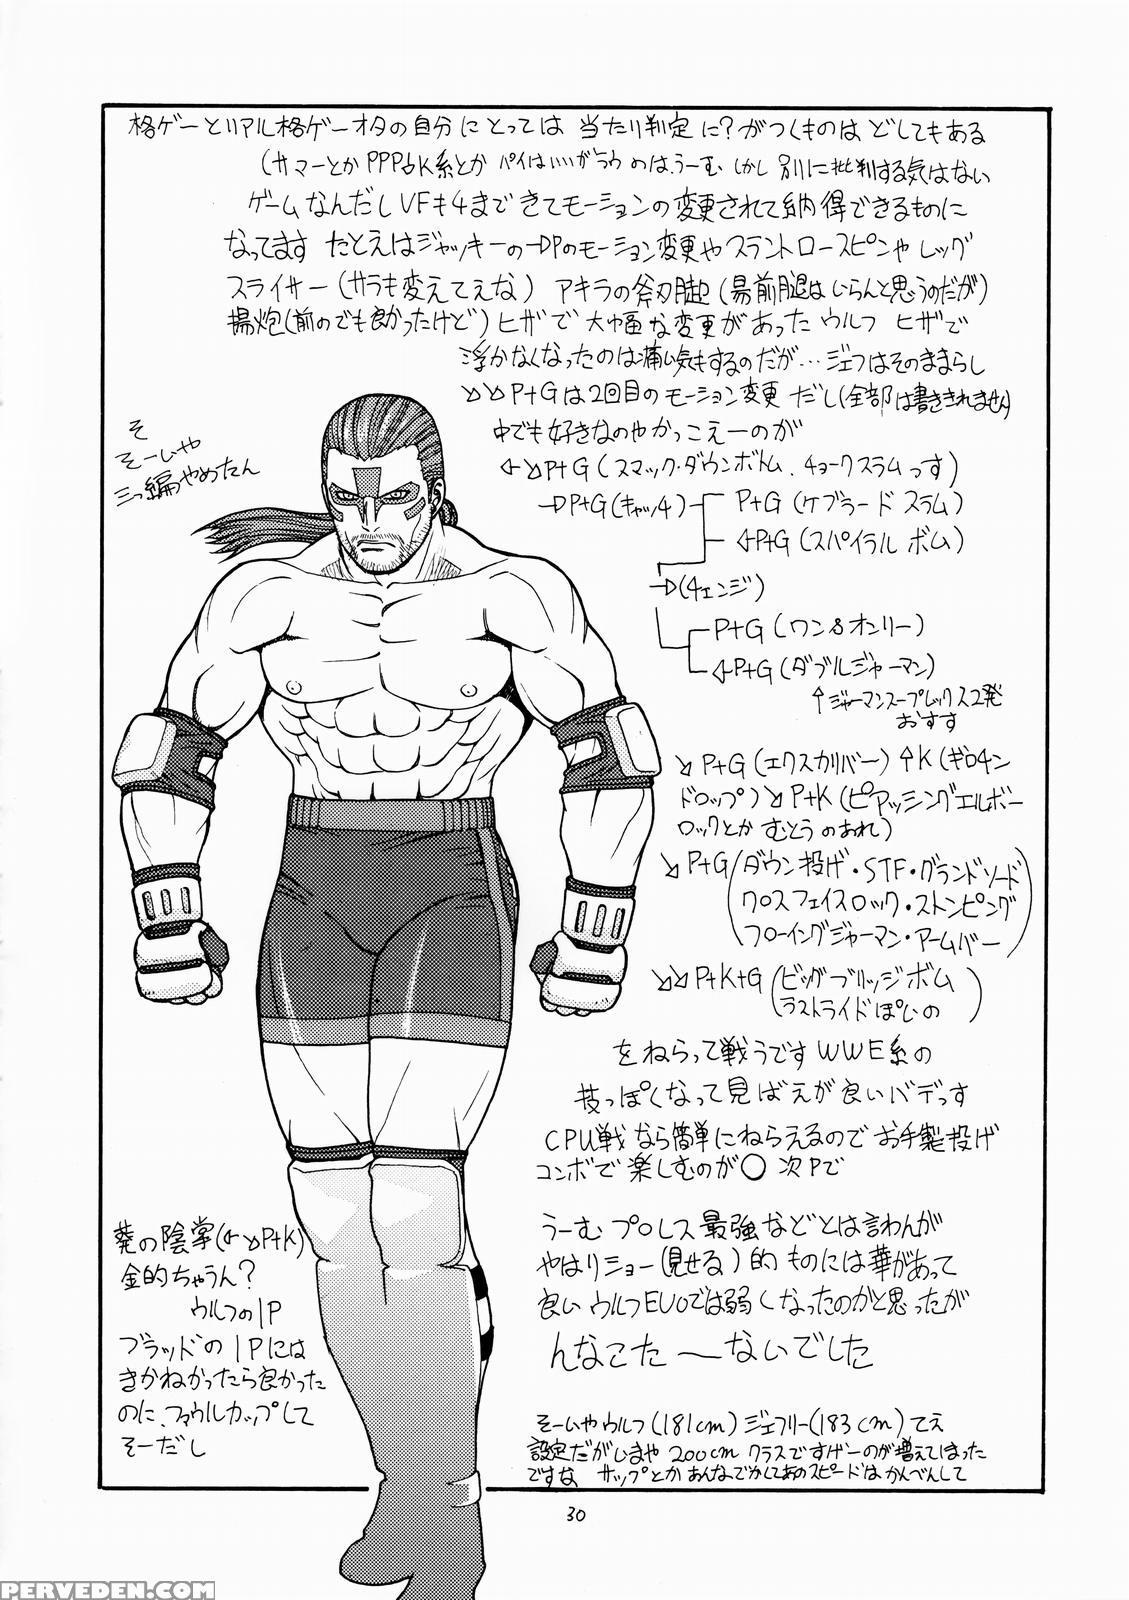 格ゲーとリアル格ゲーオタの自分にとっては 当たり判定に?がつくものは どしてもある
(サマーとか PPP↓K系とか パイはいいがラウのは、うーむ しかし 別に批判する気はない
ゲームなんだし VFも4まできてモーションの変更されて納得できるものに
なってます たとえばジャッキーの→Pのモーション変更や スラントロースピンや レッグ
スライサー(サラも変えてえな) アキラの斧刃脚(昜前腿はいらんと思うのだが)
揚炮(前のでも良かったけど) ヒザで 大幅な変更があった ウルフ ヒザで
浮かなくなったのは痛い気もするのだが… ジェフはそのままらし
↘↘P+Gは2回目のモーション変更だし(全部は書ききれません)
中でも好きなのやかっこえーのが
←↘P+G (スマック・ダウンボトム、チョークスラムっす)
→P+G(キャッチ)
P+G (ケブラード スラム)
←P+G (スパイラル ボム)
→(チェンジ)
P+G (ワン&オンリー)
←P+G (ダブルジャーマン)
↑ジャーマンスープレックス2発
おすす
↘ P+G (エクスカリバー) ↑K (ギロチン
ドロップ) ↘ P+K (ピアッシングエルボー
ロックとか むとうのあれ)
↘P+G (ダウン投げ・STF・グランドソード
クロスフェイスロック・ストンピング
フローイングジャーマン・アームバー)
↘↘ P+K+G (ビッグブリッジボム
ラストライドぽいの)
をねらって戦うです WWE系の
技っぽくなって見ばえが良いバデっす
CPU戦なら簡単にねらえるので お手製投げ
コンボで楽しむのが○ 次Pで
うーむ プロレス最強などとは言わんが
やはりショー(見せる)的ものには華があって
良い ウルフEVOでは弱くなったのかと思ったが
んなこた〜ないでした
そーいやウルフ(181cm) ジェフリー(183cm)てえ
設定だがいまや 200cm クラスですげーのが増えてしまった
ですな サップとか あんなでかしてあのスピードは かんべんして
そ
そーいや
三つ編やめたん
葵の陰掌(←↘P+K)
金的ちゃうん?
ウルフの1P
ブラッドの1Pには
きかねかったら良かった
のに、ファウルカップして
そーだし
30
PERVEDEN.COM